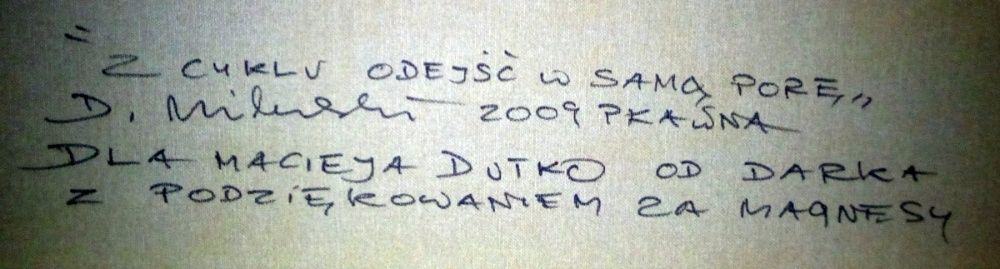 "Z CYKLU ODEJŚĆ W SAMĄ PORĘ"
D. 2009 PKAWNA
DLA MACIEJA DUTKO OD DARKA
Z PODZIĘKOWANIEM ZA MAGNESY